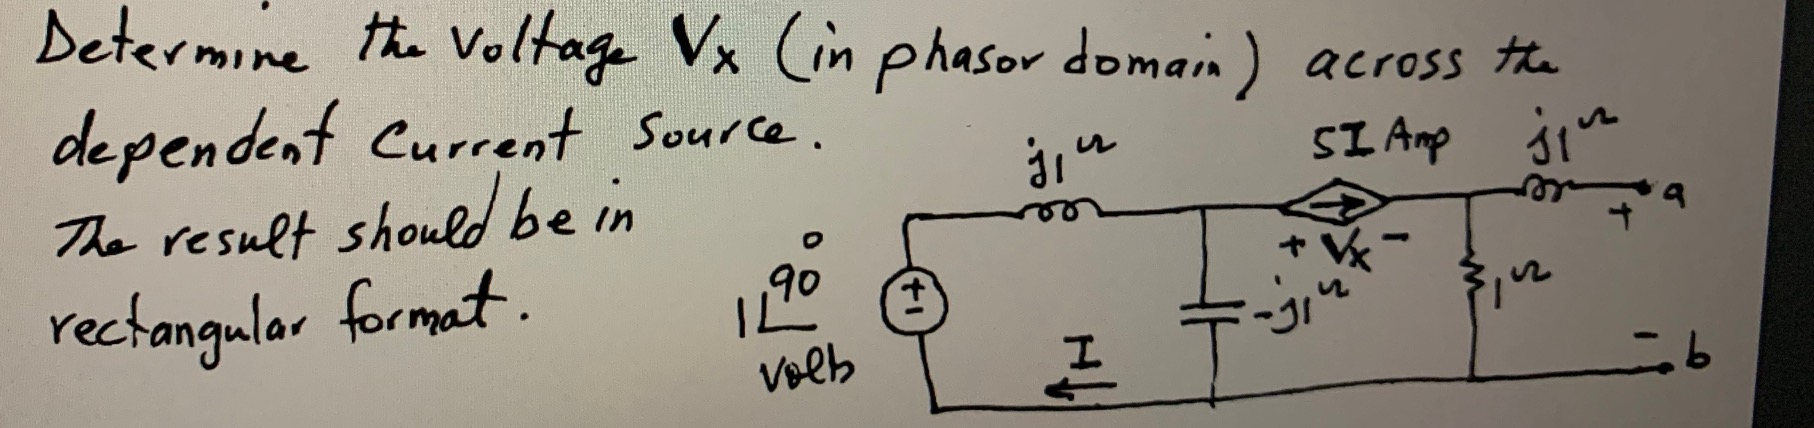 Determine the Voltage Vx (in phasor domain) across the
dependent Current Source.
The result should be in
rectangular format.
1∠90°
volts
+
-
j1Ω
5I Amp
j1Ω
+ Vx -
-j1Ω
1Ω
I
a
+
-
b